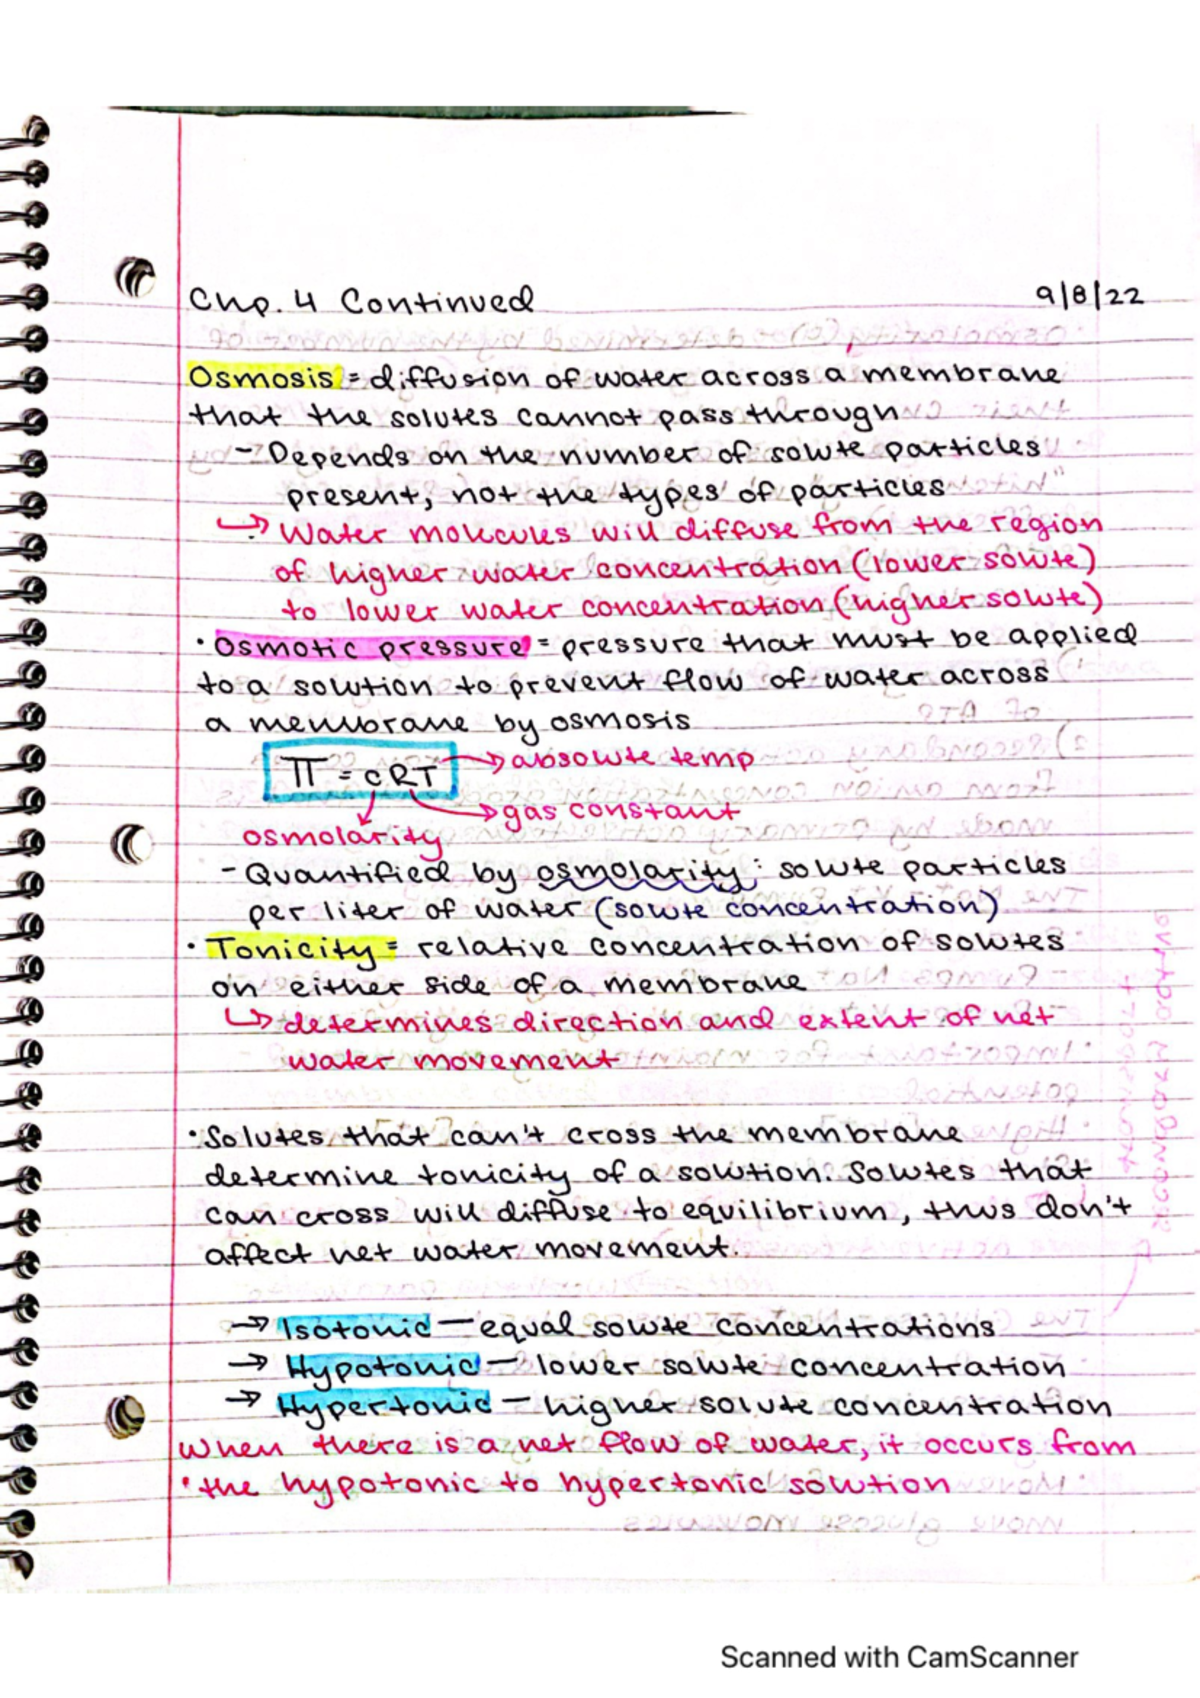 Chp. 4 Continued 9/8/22
Osmosis = diffusion of water across a membrane
that the solutes cannot pass through
- Depends on the number of solute particles
present, not the types of particles
↳ Water molecules will diffuse from the region
of higher water concentration (lower solute)
to lower water concentration (higher solute)
· Osmotic pressure = pressure that must be applied
to a solution to prevent flow of water across
a membrane by osmosis
π = cRT → absolute temp
→ gas constant
osmolarity
- Quantified by osmolarity: solute particles
per liter of water (solute concentration)
· Tonicity = relative concentration of solutes
on either side of a membrane
↳ determines direction and extent of net
water movement
· Solutes that can't cross the membrane
determine tonicity of a solution. Solutes that
can cross will diffuse to equilibrium, thus don't
affect net water movement.
→ Isotonic — equal solute concentrations
→ Hypotonic — lower solute concentration
→ Hypertonic — higher solute concentration
When there is a net flow of water, it occurs from
· the hypotonic to hypertonic solution
Scanned with CamScanner